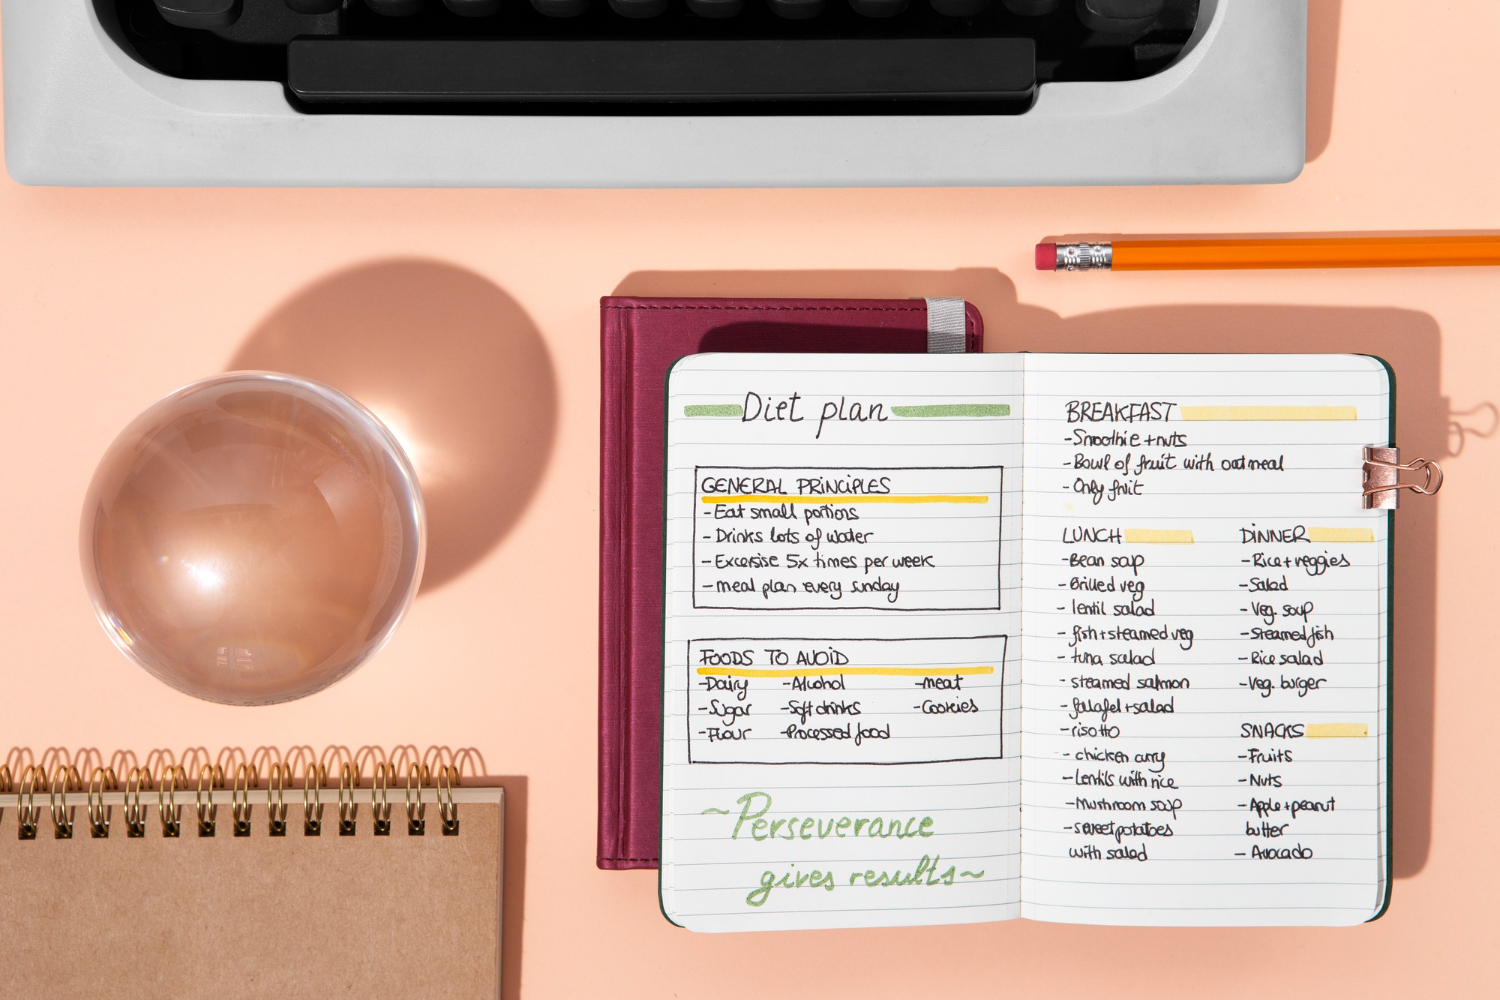 Diet plan
GENERAL PRINCIPLES
-Eat small portions
-Drinks lots of water
-Excersise 5x times per week
-meal plan every sunday
FOODS TO AVOID
-Dairy -Alcohol -meat
-Sugar -Soft drinks -Cookies
-Flour -Processed food
~Perseverance
gives results~
BREAKFAST
-Smoothie + nuts
-Bowl of fruit with oatmeal
-Only fruit
LUNCH
-Bean soup
-Grilled veg
- lentil salad
- fish + steamed veg
- tuna salad
- steamed salmon
- falafel + salad
-risotto
- chicken curry
-Lentils with rice
-Mushroom soup
-sweet potatoes
with salad
DINNER
-Rice + veggies
-Salad
-Veg. soup
-Steamed fish
-Rice salad
-Veg. burger
SNACKS
-Fruits
-Nuts
-Apple + peanut
butter
- Avocado